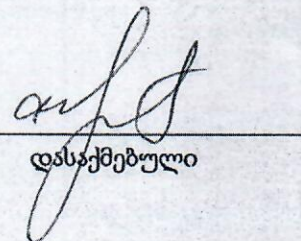 დასაქმებული